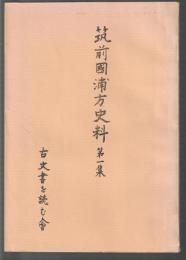 筑前國浦方史料 第一集
古文書を読む会